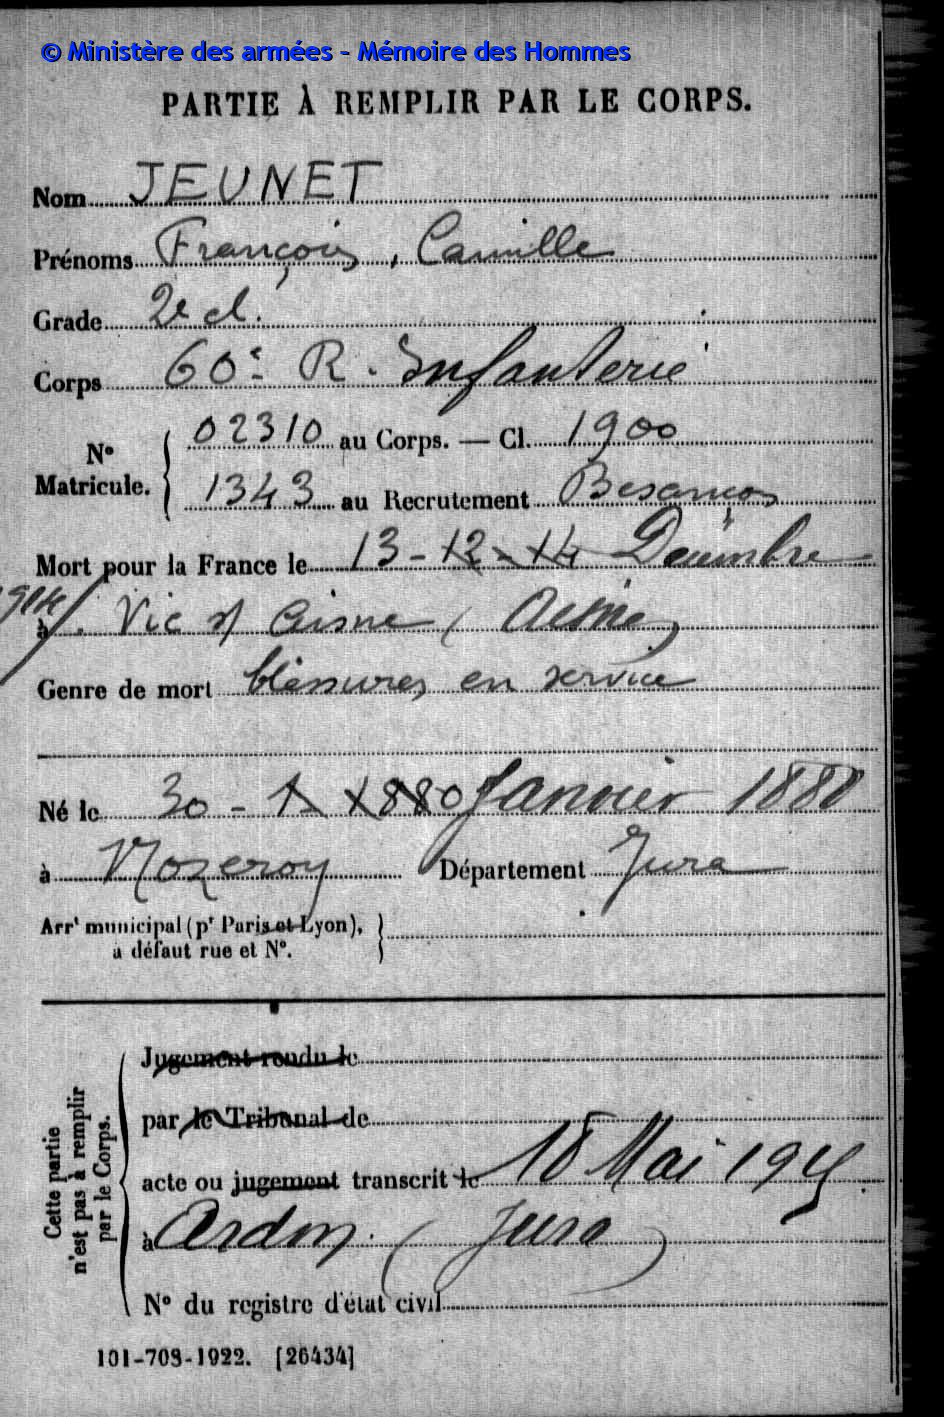 © Ministère des armées - Mémoire des Hommes
PARTIE À REMPLIR PAR LE CORPS.
Nom JEUNET
Prénoms François, Camille
Grade 2e cl.
Corps 60e R. Infanterie
N° Matricule. 02310 au Corps. — Cl. 1900
1343 au Recrutement Besançon
Mort pour la France le 13 - 12 - 14 Décembre
1914 à Vic s/ Aisne (Aisne)
Genre de mort blessures en service
Né le 30 - 1 1880 Janvier 1880
à Nozeroy Département Jura
Arrt municipal (pr Paris et Lyon),
à défaut rue et N°.
Cette partie n'est pas à remplir par le Corps.
Jugement rendu le
par le Tribunal de
acte ou jugement transcrit le 18 Mai 1915
à Ardon (Jura)
N° du registre d'état civil
101-708-1922. [26434]